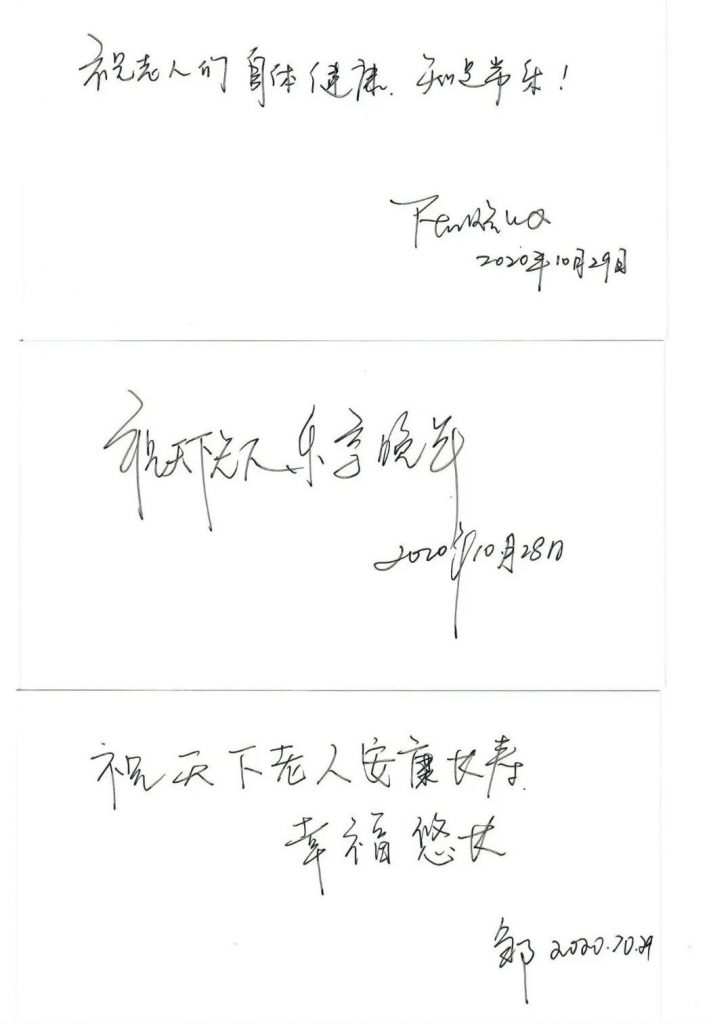 祝老人们身体健康、知足常乐！
2020年10月29日
祝天下老人、乐享晚年
2020年10月28日
祝天下老人安康长寿、
幸福悠长
邹 2020.10.29